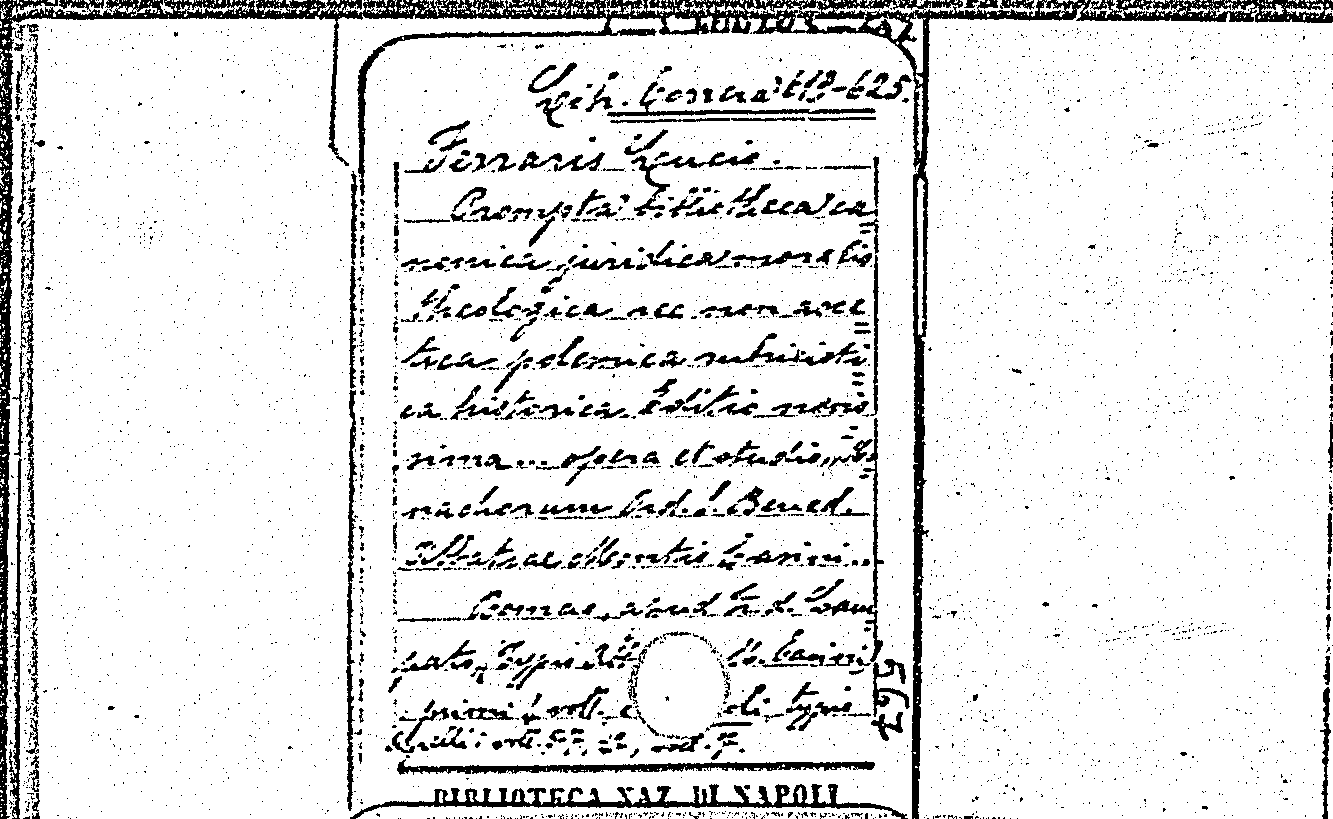 Lib. Carrera 613-625.
Ferraris Lucio.
Prompta bibliotheca ca
nonica juridica moralis
theologica nec non asce
tica polemica rubricisti
ca historica. Editio novis
sima ... opera et studio,, Mo
nachorum Ord. S. Bened.
Abbatiae Montis Casini...
Romae, apud
pato, Typis M. Casini)
primi voll. typis
voll. 5/7, vol. 7.
5/67
BIBLIOTECA NAZ. DI NAPOLI